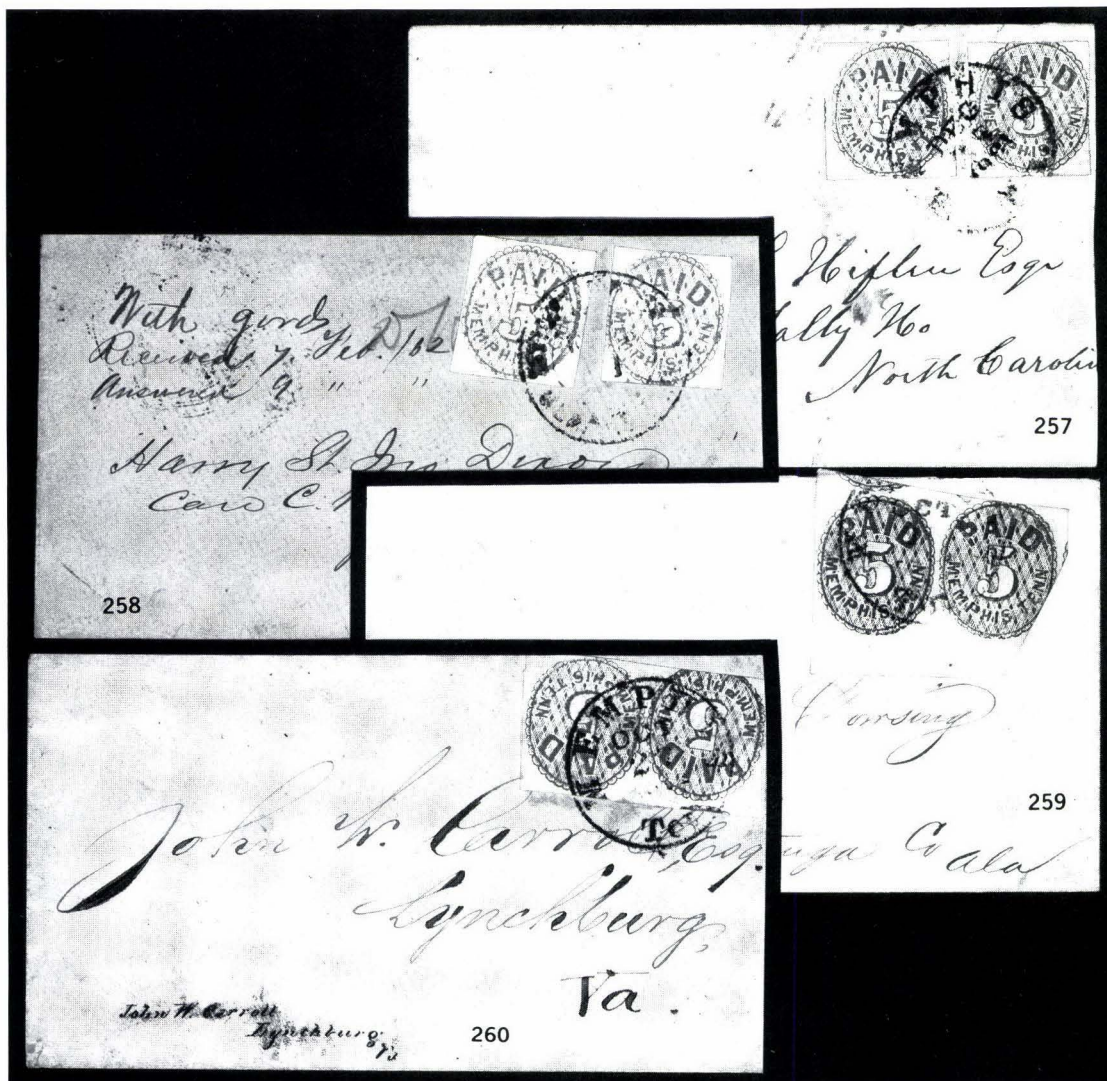 PAID 5 MEMPHIS, TENN
PAID 5 MEMPHIS, TENN
MPHIS
Hiflin Esqr
Tally Ho
North Carolin
257
PAID 5 MEMPHIS, TENN
PAID 5 MEMPHIS, TENN
With goods
Received 7. Feb. /62
Answered 9 " "
Harry St. Jno Dixon
Care C.
258
PAID 5 MEMPHIS, TENN
PAID 5 MEMPHIS, TENN
Co Ala
259
PAID 5 MEMPHIS, TENN
PAID 5 MEMPHIS, TENN
MEMPHIS
OCT
2
Te
John W. Carroll, Esq.
Lynchburg,
Va.
John W. Carroll
Lynchburg
Va
260